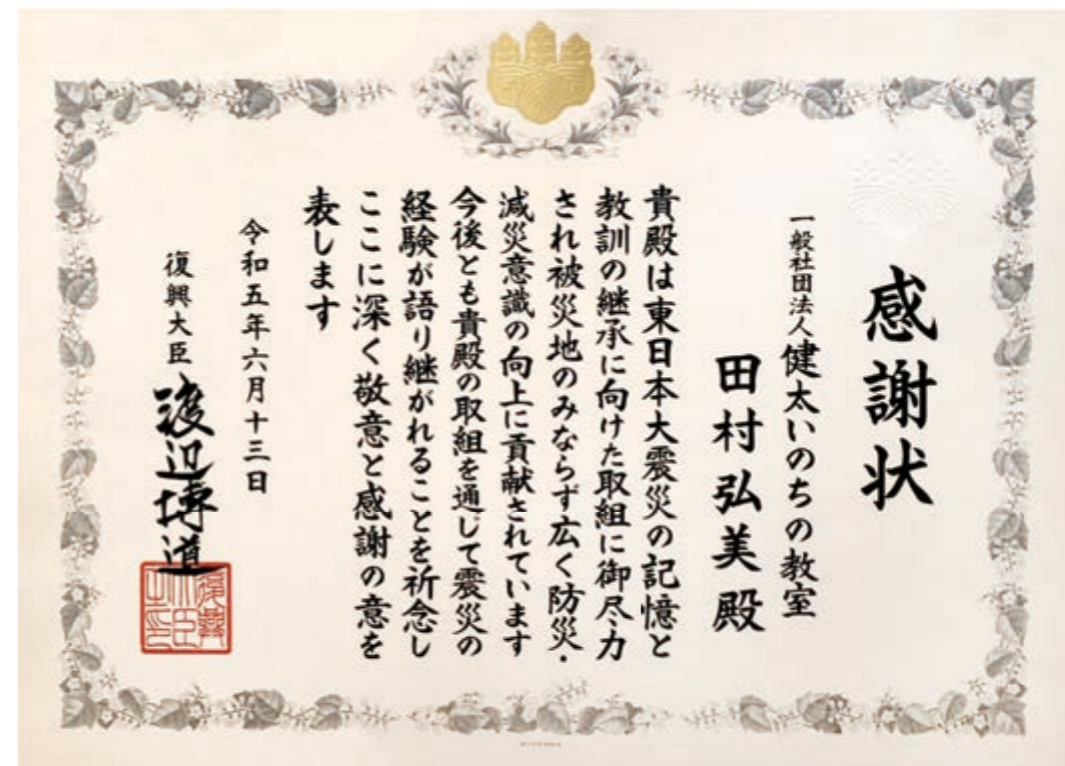 感謝状
一般社団法人健太いのちの教室
田村弘美殿
貴殿は東日本大震災の記憶と
教訓の継承に向けた取組に御尽力
され被災地のみならず広く防災・
減災意識の向上に貢献されています
今後とも貴殿の取組を通じて震災の
経験が語り継がれることを祈念し
ここに深く敬意と感謝の意を
表します
令和五年六月十三日
復興大臣 渡辺博道
復興大臣之印